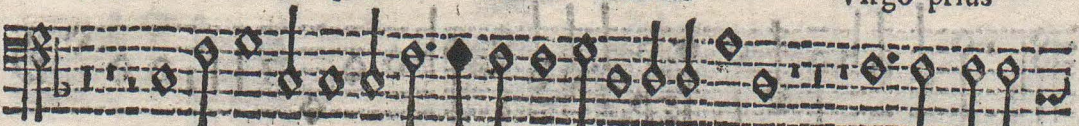 Virgo prius